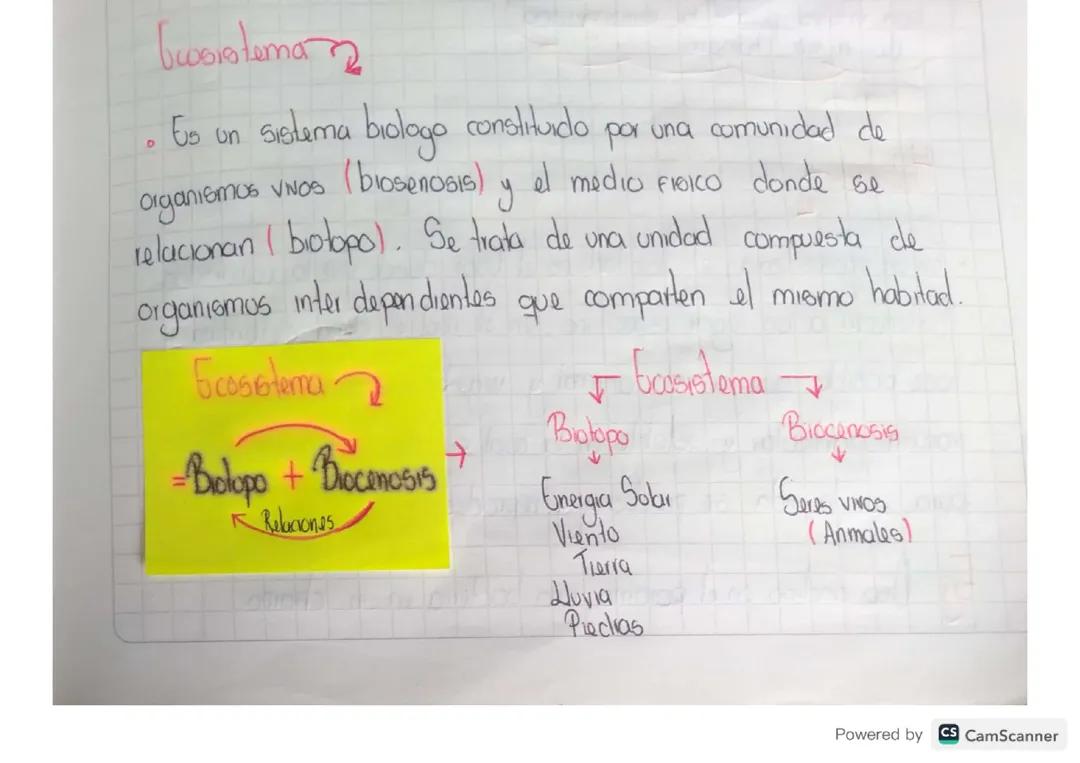 Ecosistema
. Es un sistema biologo constituido por una comunidad de
organismos vivos (biosenosis) y el medio fisico donde se
relacionan (biotopo). Se trata de una unidad compuesta de
organismos inter dependientes que comparten el mismo habitad.
Ecosistema
=Biotopo + Biocenosis
Relaciones
Ecosistema
Biotopo
Biocenosis
Energia Solar
Viento
Tierra
Lluvia
Piedras
Seres vivos
(Anmales)
Powered by CS CamScanner